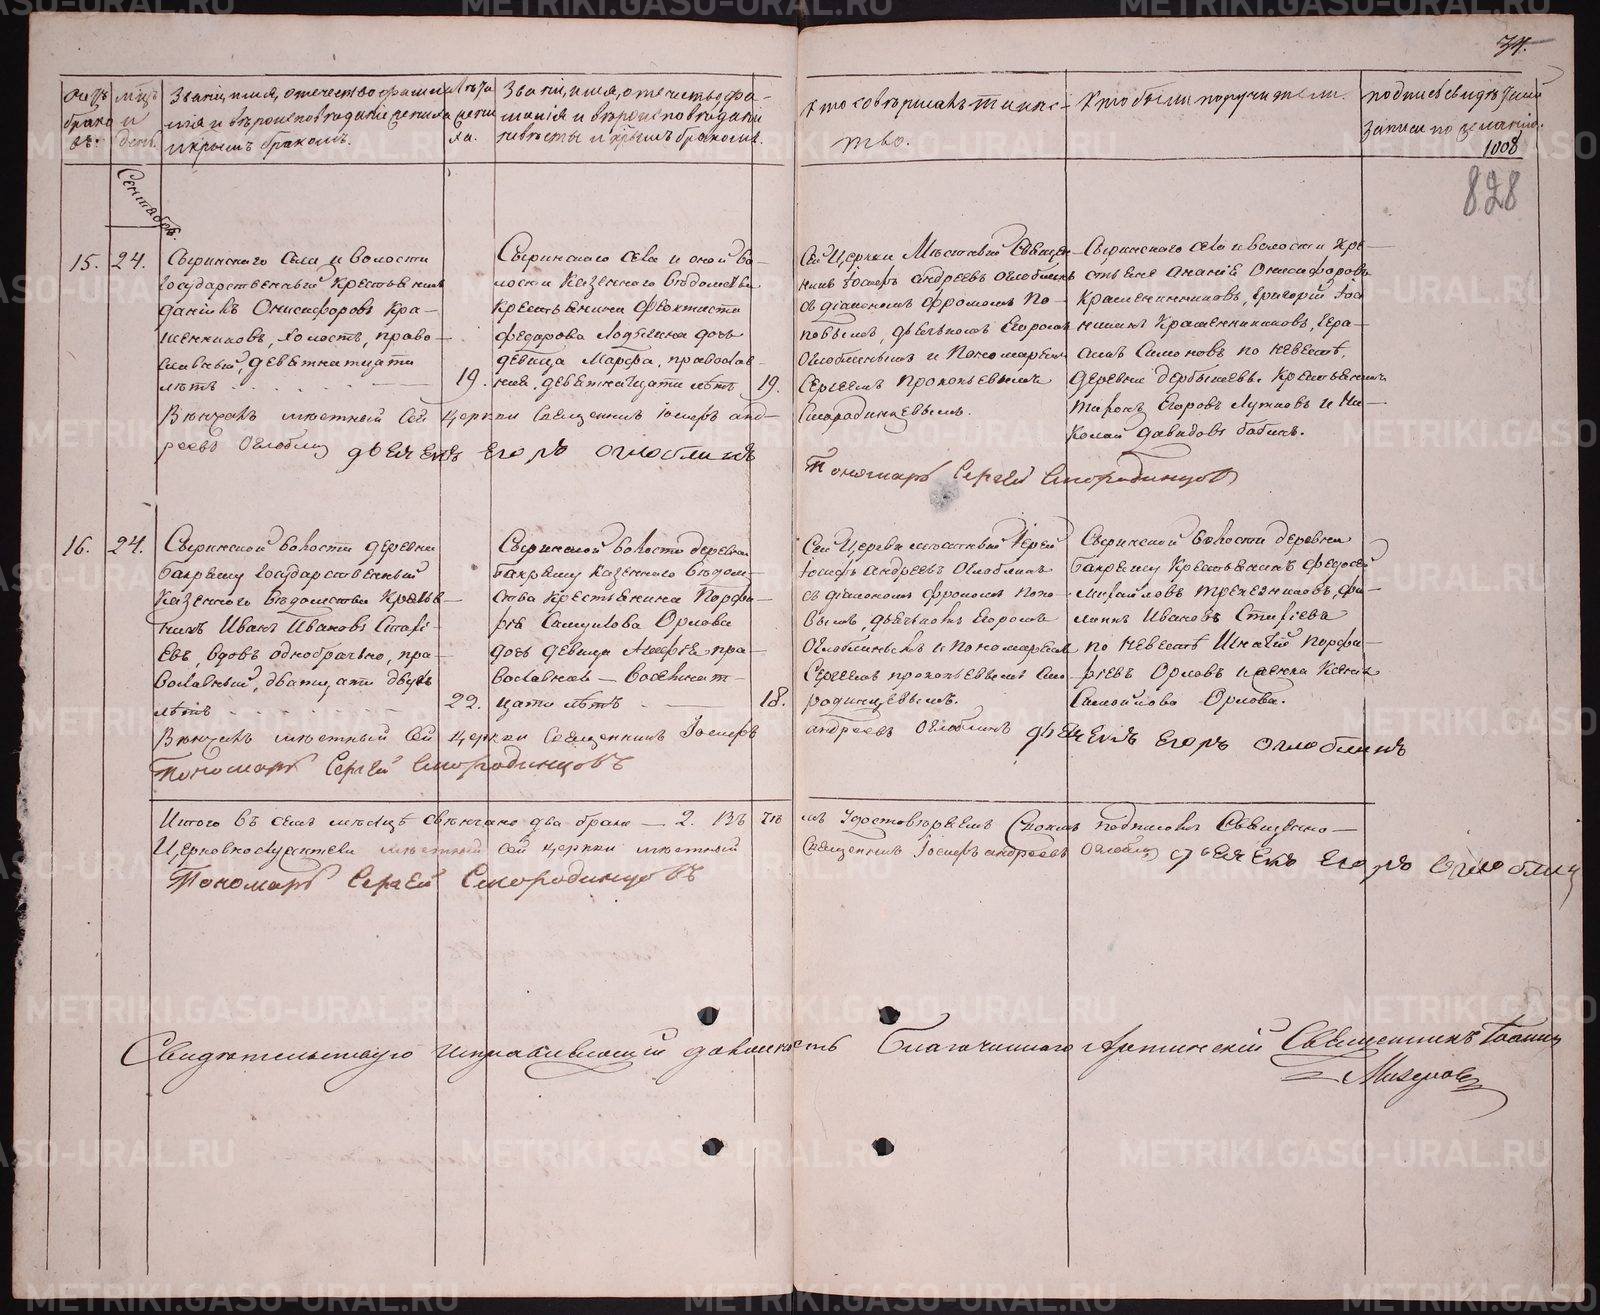 34.
Счетъ браковъ.
Мѣсяцъ и день.
Званіе, имя, отечество, фамилія и вѣроисповѣданіе жениха и крымъ бракомъ.
Лѣта жениха.
Званіе, имя, отечество, фамилія и вѣроисповѣданіе невѣсты и крымъ бракомъ.
Кто совершалъ таинство.
Кто были поручители.
подпись свидѣтелей записи по желанію.
1008
828
Сентябрь.
15.
24.
Сыринского села и волости
Государственный Крестьянинъ
Данiилъ Онисифоровъ Кра-
шенниковъ, холостъ, право-
славный, девятнатцати
лѣтъ
19.
Сыринского села и оной во-
лости Казенного вѣдомства
Крестьянина Феоктиста
Федорова дочь
девица Марфа, православ-
ная, девятнатцати лѣтъ
19.
Сей Церкви Мѣстный Священ-
никъ Іосифъ Андреевъ Оглоблинъ
съ діакономъ Фроломъ По-
повымъ, дьячькомъ Егоромъ
Оглоблинымъ и Пономаремъ
Сергеемъ Прокопьевымъ
Смородинцевымъ.
Сыринского села и волости Кре-
стьяне Ананій Онисифоровъ
Крашенинниковъ, Григорій
Крашенниниковъ, Гера-
симъ Симоновъ по невестѣ,
деревни Крестьянинъ
Егоровъ Лужновъ и Ни-
колай Давыдовъ Бабинъ.
Вѣнчалъ мѣстный сей церкви Священникъ Іосифъ Анд-
реевъ Оглоблинъ дьячекъ Егоръ Оглоблинъ
Пономарь Сергей Смородинцовъ
16.
24.
Сыринской волости деревни
Бакряжу Государственный
Казенного вѣдомства Крестья-
нинъ Иванъ Ивановъ
евъ, вдовъ однобрачьно, пра-
вославный, дватцати двухъ
лѣтъ
22.
Сыринской волости деревни
Бакряжу Казенного вѣдом-
ства крестьянина Порфи-
рія Самуилова Орлова
дочь девица пра-
вославная - восемнат-
цати лѣтъ
18.
Сей Церкви мѣстный Іерей
Іосифъ Андреевъ Оглоблинъ
съ діакономъ Фроломъ Попо-
вымъ, дьячькомъ Егоромъ
Оглоблинымъ и Пономаремъ
Сергеемъ Прокопьевымъ Смо-
родинцевымъ.
Сыринской волости деревни
Бакряжу Крестьянинъ Федосей
Михайловъ Трекезниковъ, Фи-
липпъ Ивановъ
по невестѣ Игнатій Порфи-
рьевъ Орловъ и
Самойлова Орлова.
Вѣнчалъ мѣстный сей церкви Священникъ Іосифъ
Андреевъ Оглоблинъ дьячекъ Егоръ Оглоблинъ
Пономарь Сергей Смородинцовъ
Итого въ семъ мѣсяцѣ свѣнчано два брака - 2. Въ чемъ удостовѣряемъ своимъ подписомъ Священно-
Церковнослужители мѣстный сей церкви мѣстный Священникъ Іосифъ Андреевъ Оглоблинъ дьячекъ Егоръ Оглоблинъ
Пономарь Сергей Смородинцовъ
Свидѣтельствую исправляющій должность Благочиннаго Артинскій Священникъ Іоаннъ
METRIKI.GASO-URAL.RU